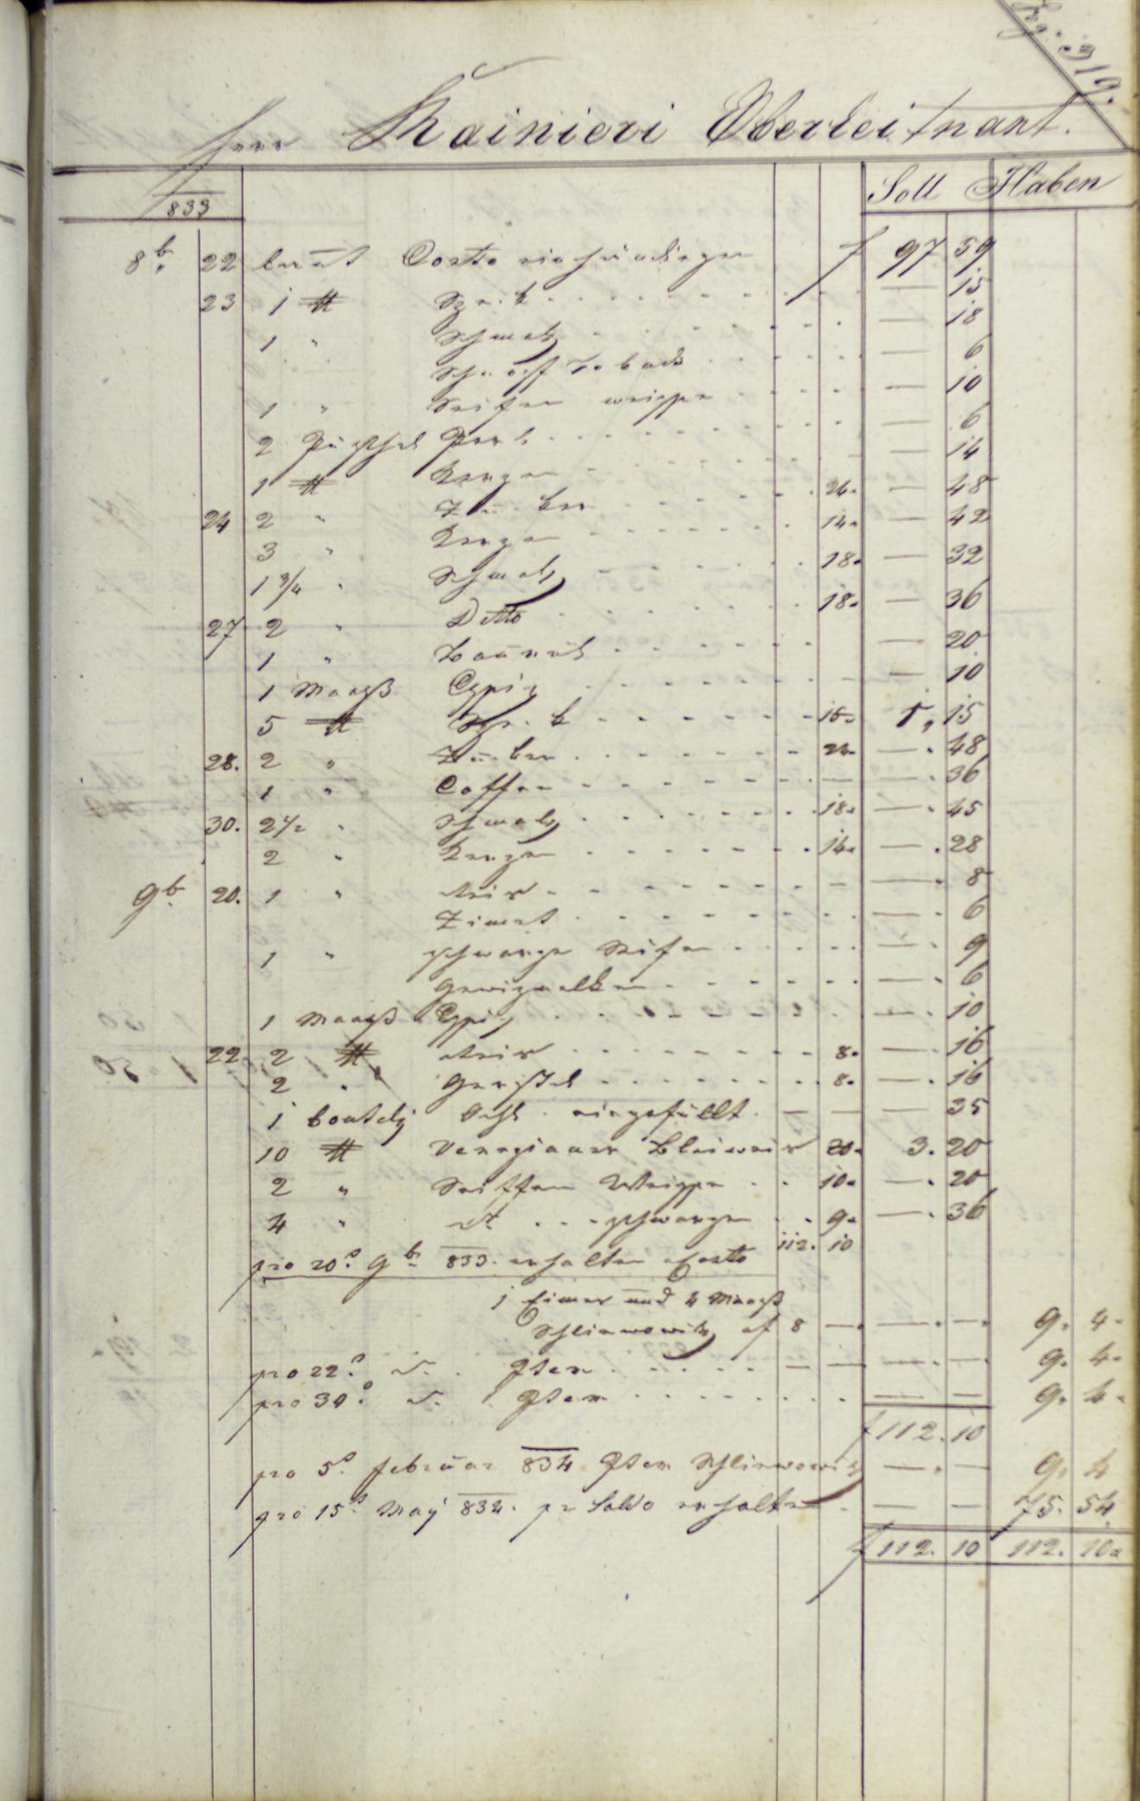 319.
Herr Rainieri Oberleitnant.
833 Soll Haben
8b. 22 laut Conto einhändigen f 97 59
23 1 ℔ Speck — 15
1 " Schmalz — 18
Schnupf Toback — 6
1 " Seifen weisse — 10
2 Püschel — 6
1 ℔ Kerzen — 14
24 2 " Zucker 24. — 48
3 " Kerzen 14. — 42
1 3/4 " Schmalz 18. — 32
27 2 " Detto 18. — 36
1 " — 20
1 Maaß Essig — 10
5 ℔ Speck 15. 1. 15
28. 2 " Zucker 24. — 48
1 " Coffee — 36
30. 2 1/2 " Schmalz 18. — 45
2 " Kerzen 14. — 28
9b. 20. 1 " Reis — 8
Zimet — 6
1 " schwarze Seifen — 9
Gewürznelken — 6
1 Maaß Essig — 10
22 2 ℔ Reis 8. — 16
2 " Gerstel 8. — 16
1 Boutelj Oehl eingefüllt — 35
10 ℔ Venezianer Bleiweis 20. 3. 20
2 " Seiffen Weisse 10. — 20
4 " dt schwarzen 9. — 36
pro 20. 9b. 833. erhalten Conto 112. 10
1 Eimer und 4 Maaß
Schliwowitz af 8 — — — 9. 4.
pro 22. d. — — 9. 4.
pro 30. d. — — 9. 4.
f 112. 10
pro 5. Februar 834 Schliwowitz — — 9. 4
pro 15. May 834. pr Saldo erhalten — — 75. 54
f 112. 10 112. 10.